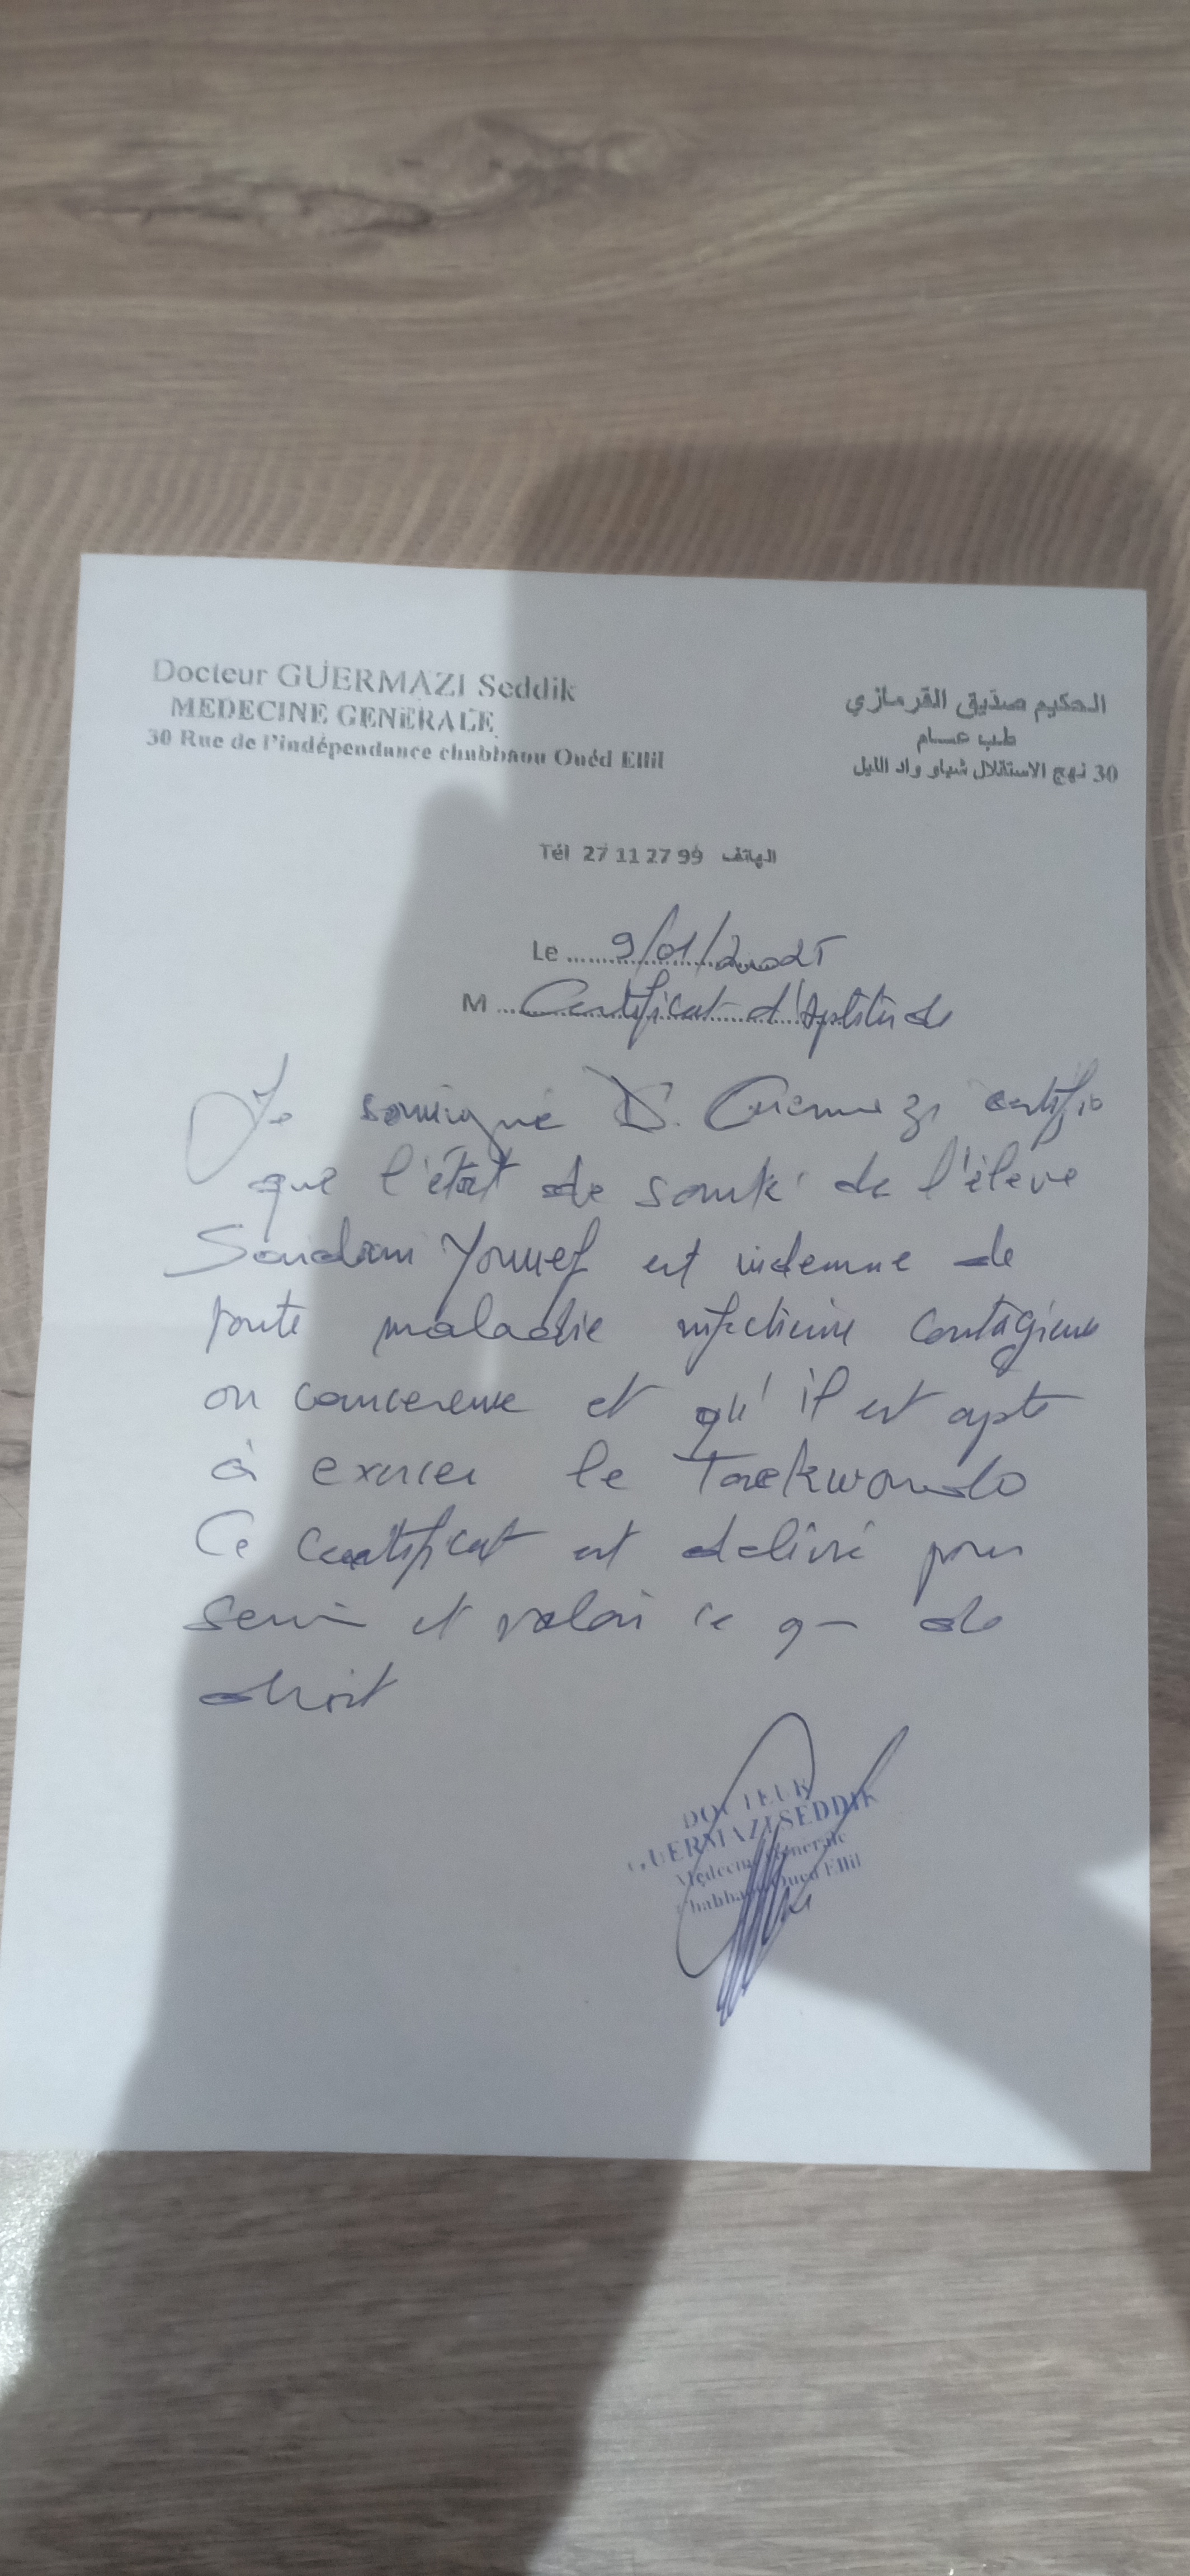 Docteur GUERMAZI Seddik
MEDECINE GENERALE
30 Rue de l'indépendance chabbaou Ouéd Ellil
الحكيم صديق القرمازي
طب عام
30 نهج الاستقلال شباو واد الليل
Tél 27 11 27 99 الهاتف
Le 9/01/2025
M Certificat d'Aptitude
Je soussigné Dr. Guermazi certifie
que l'état de santé de l'élève
Saidani Youssef est indemne de
toute maladie infectieuse contagieuse
ou cancereuse et qu'il est apte
à exercer le Taekwondo
Ce certificat est délivré pour
servir et valoir ce que de
droit
DOCTEUR
GUERMAZI SEDDIK
Médecine Générale
Chabbaou Oued Ellil